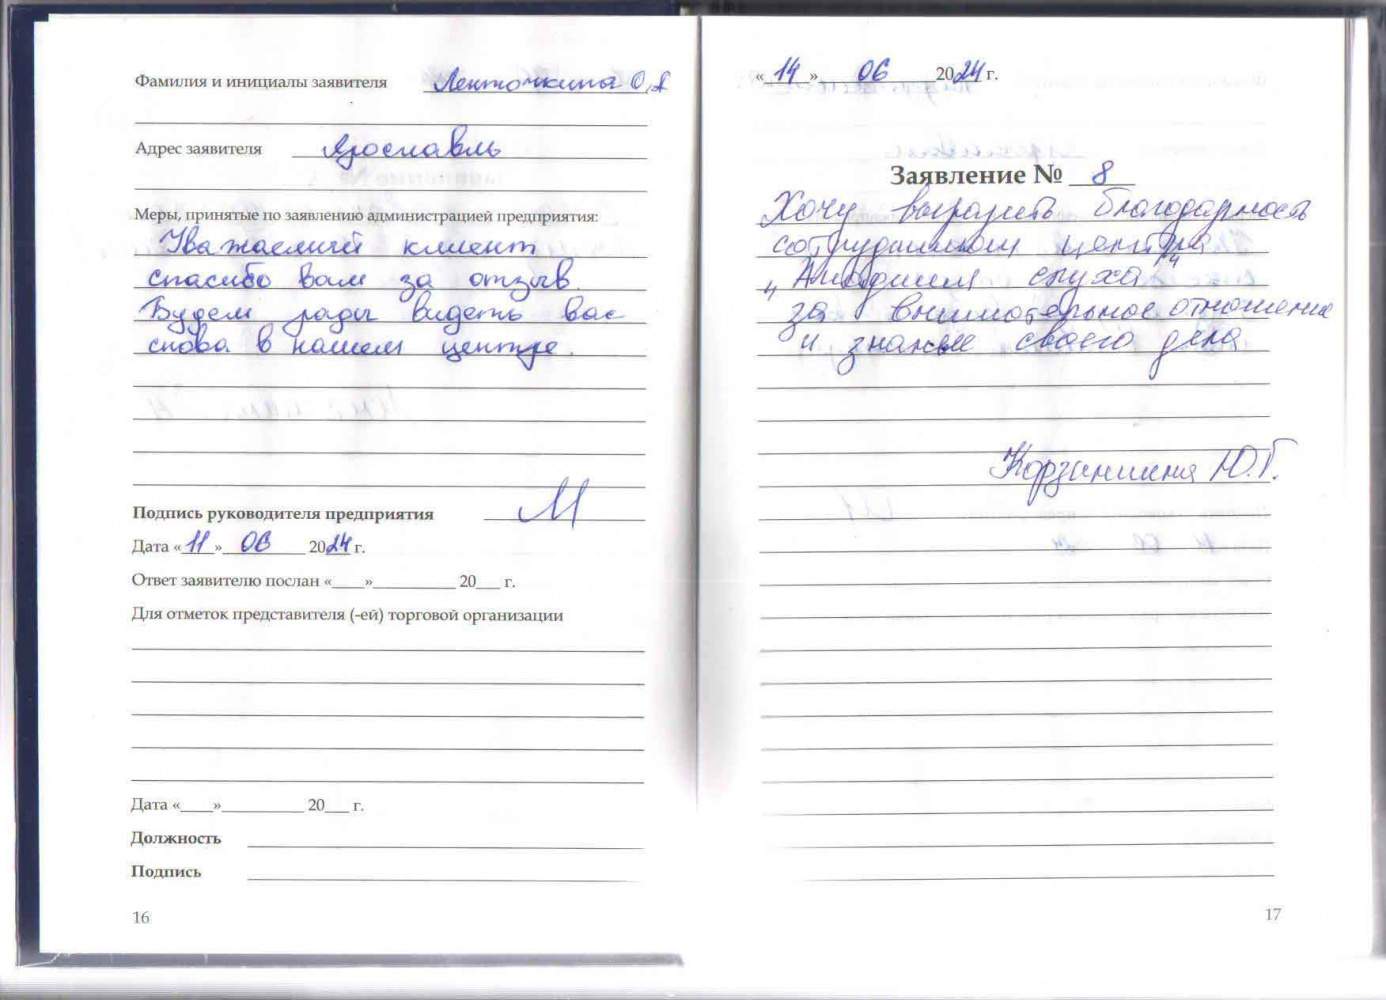 Фамилия и инициалы заявителя Ленточкина О.А
Адрес заявителя Ярославль
Меры, принятые по заявлению администрацией предприятия:
Уважаемый клиент
спасибо вам за отзыв.
Будем рады видеть вас
снова в нашем центре.
Подпись руководителя предприятия
Дата «11» 06 2024 г.
Ответ заявителю послан «____»__________ 20___ г.
Для отметок представителя (-ей) торговой организации
Дата «____»__________ 20___ г.
Должность
Подпись
16
«14» 06 2024 г.
Заявление № 8
Хочу выразить благодарность
сотрудникам центра
"Академия слуха"
за внимательное отношение
и знание своего дела
Ю.Г.
17